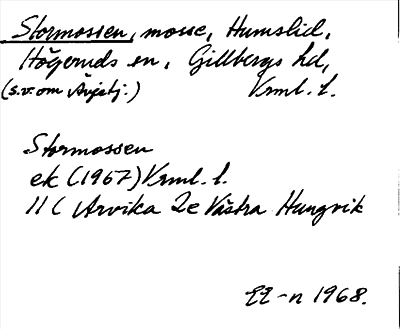 Stormossen, mosse, Humslid,
Högeruds sn, Gillbergs hd,
(s.v. om Ävjetj.) Vrml. l.
Stormossen
ek (1967) Vrml. l.
11 C Arvika 2e Västra Hungvik
EE-n 1968.